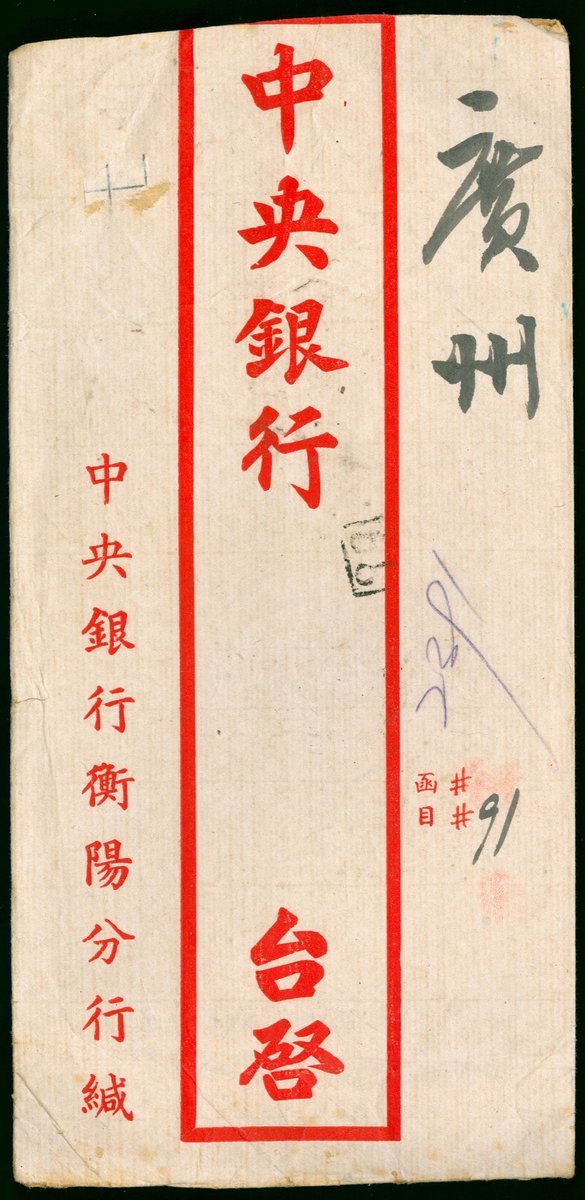 廣州
函 #
目 # 91
中央銀行 台啓
中央銀行衡陽分行緘